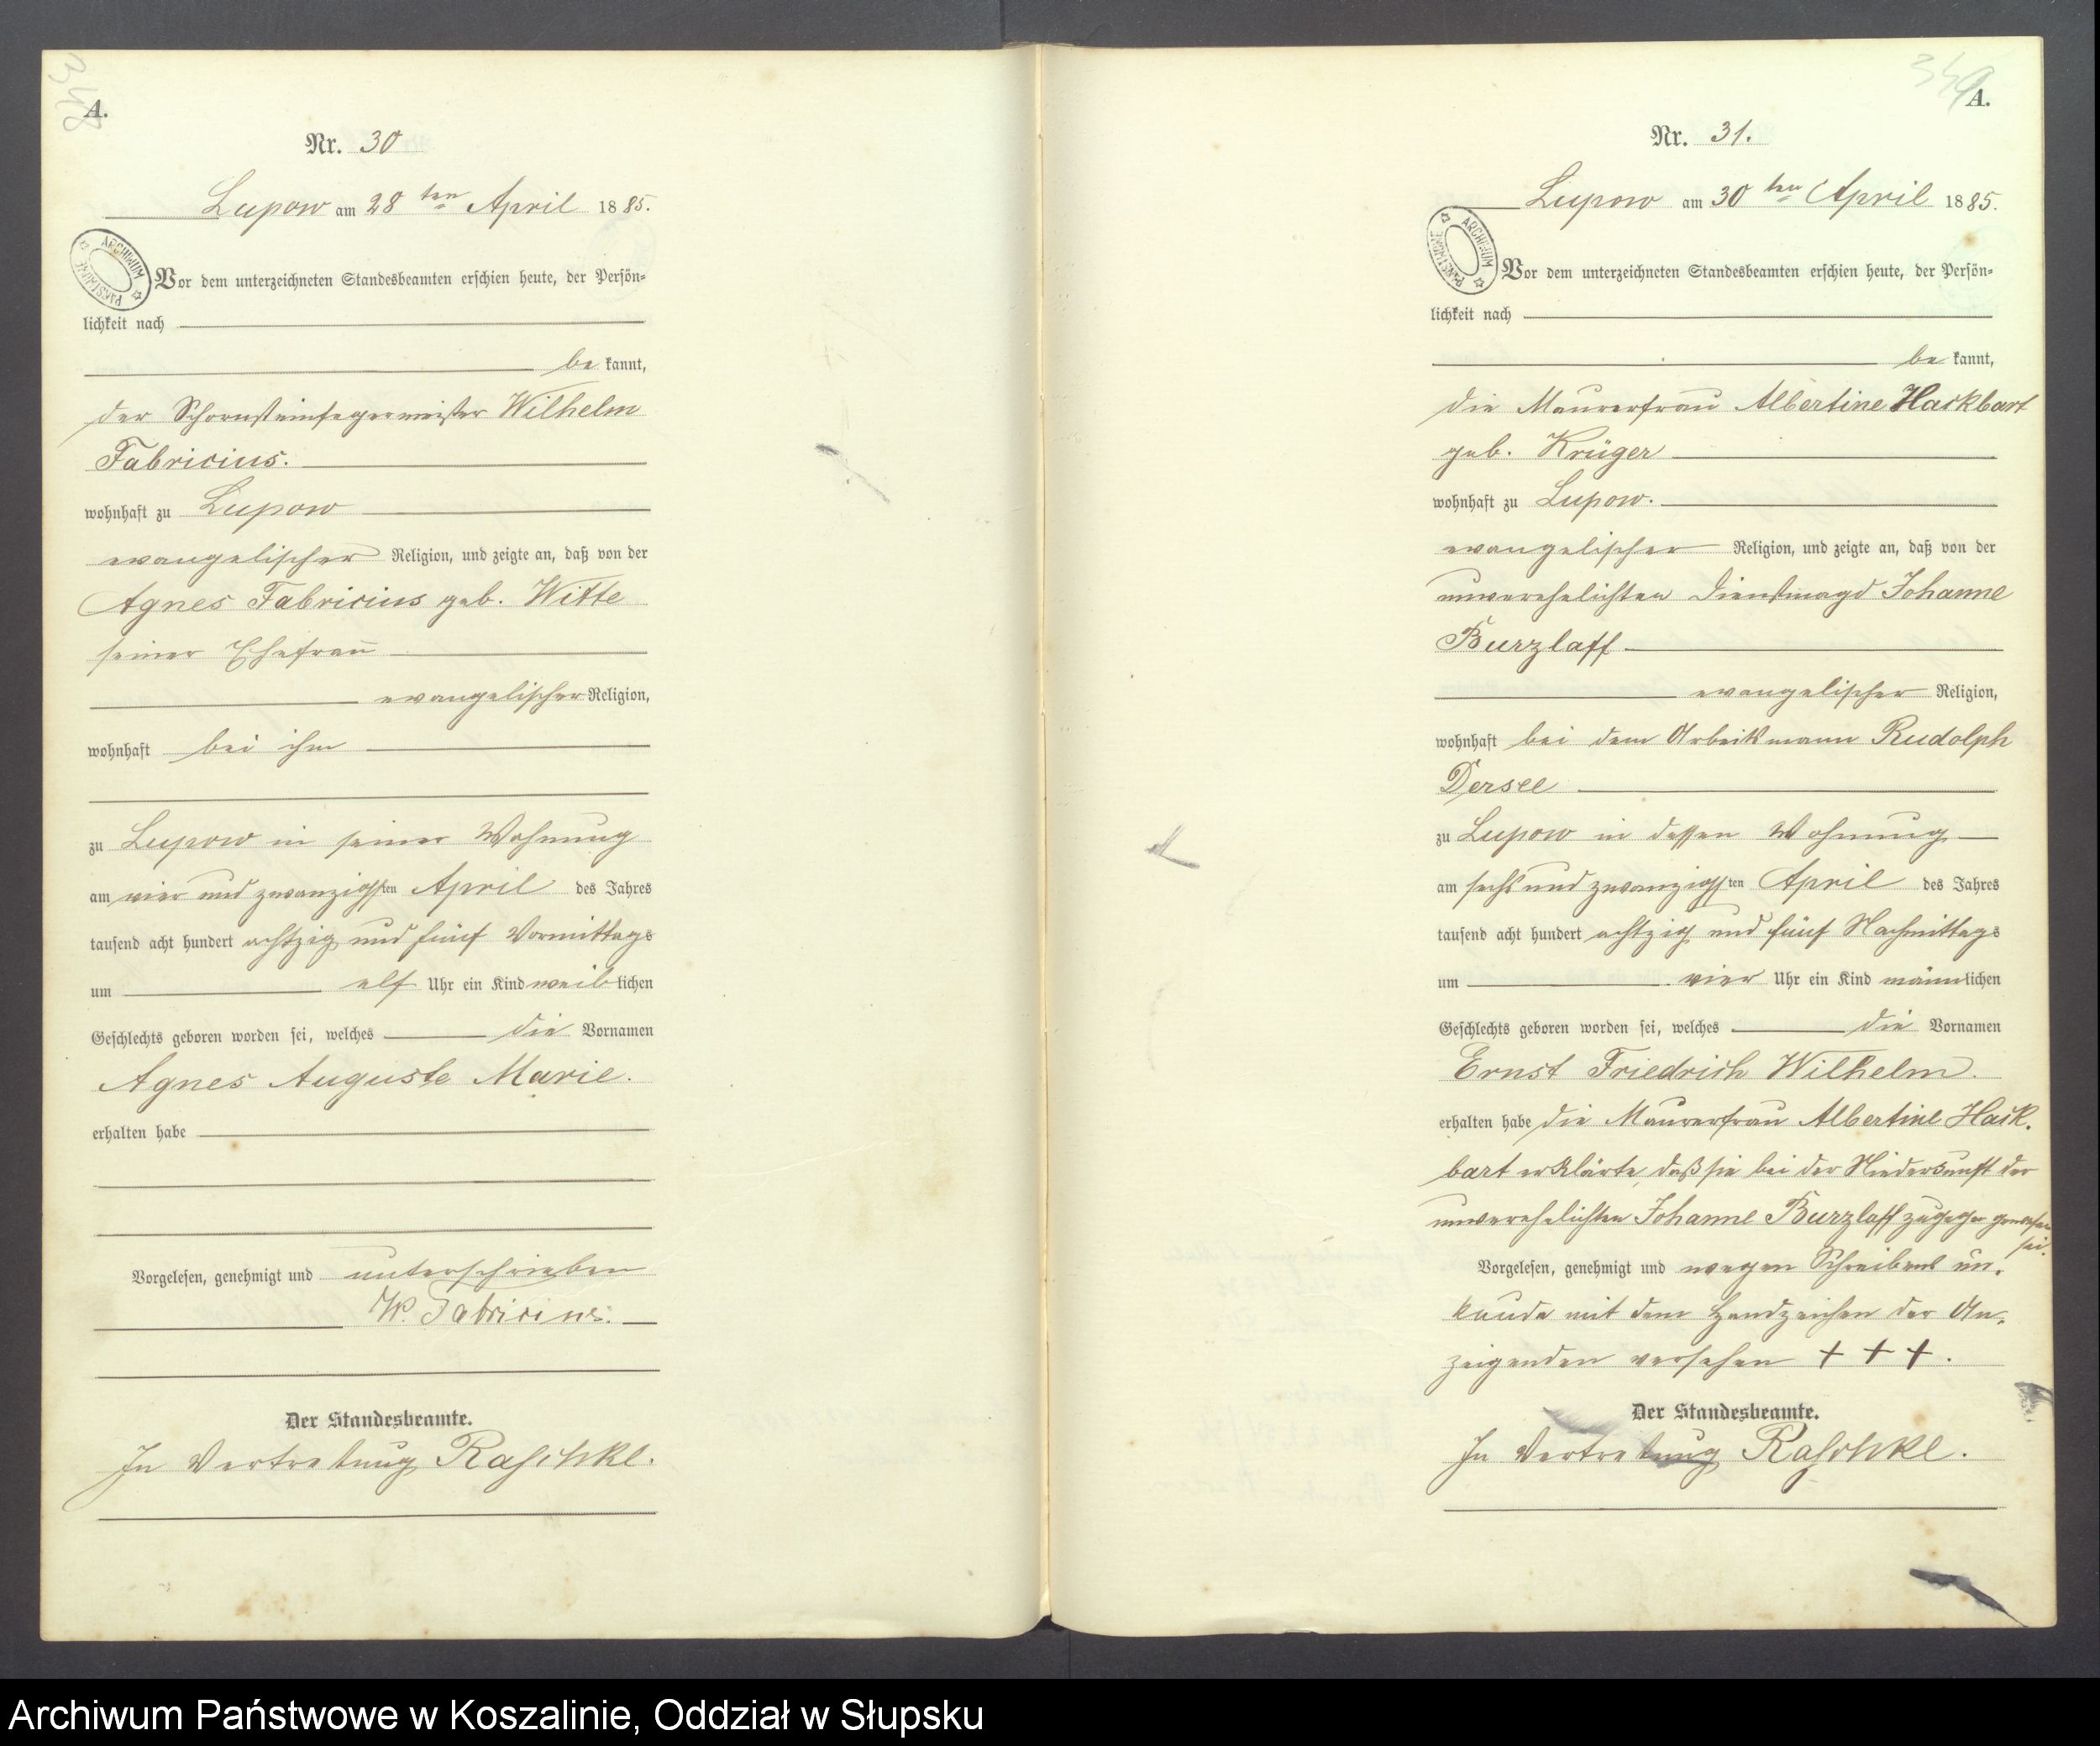 348
A.
Nr. 30
Lupow am 28ten April 1885.
ARCHIWUM PAŃSTWOWE
Vor dem unterzeichneten Standesbeamten erschien heute, der Persön-
lichkeit nach
bekannt,
der Schornsteinfegermeister Wilhelm
Fabricius.
wohnhaft zu Lupow
evangelischer Religion, und zeigte an, daß von der
Agnes Fabricius geb. Witte
seiner Ehefrau
evangelischer Religion,
wohnhaft bei ihm
zu Lupow in seiner Wohnung
am vier und zwanzigsten April des Jahres
tausend acht hundert achtzig und fünf Vormittags
um elf Uhr ein Kind weiblichen
Geschlechts geboren worden sei, welches die Vornamen
Agnes Auguste Marie.
erhalten habe
Vorgelesen, genehmigt und unterschrieben
W. Fabricius.
Der Standesbeamte.
In Vertretung Raschke.
349
A.
Nr. 31.
Lupow am 30ten April 1885.
ARCHIWUM PAŃSTWOWE
Vor dem unterzeichneten Standesbeamten erschien heute, der Persön-
lichkeit nach
bekannt,
die Maurerfrau Albertine Hackbart
geb. Krüger
wohnhaft zu Lupow.
evangelischer Religion, und zeigte an, daß von der
unverehelichten Dienstmagd Johanne
Burzlaff
evangelischer Religion,
wohnhaft bei dem Arbeitsmann Rudolph
Dersee
zu Lupow in dessen Wohnung
am sechs und zwanzigsten April des Jahres
tausend acht hundert achtzig und fünf Nachmittags
um vier Uhr ein Kind männlichen
Geschlechts geboren worden sei, welches die Vornamen
Ernst Friedrich Wilhelm.
erhalten habe die Maurerfrau Albertine Hack-
bart erklärte, daß sie bei der Niederkunft der
unverehelichten Johanne Burzlaff zugegen gewesen
sei.
Vorgelesen, genehmigt und wegen Schreibens un-
kunde mit dem Handzeichen der An-
zeigenden versehen + + +.
Der Standesbeamte.
In Vertretung Raschke.
Archiwum Państwowe w Koszalinie, Oddział w Słupsku